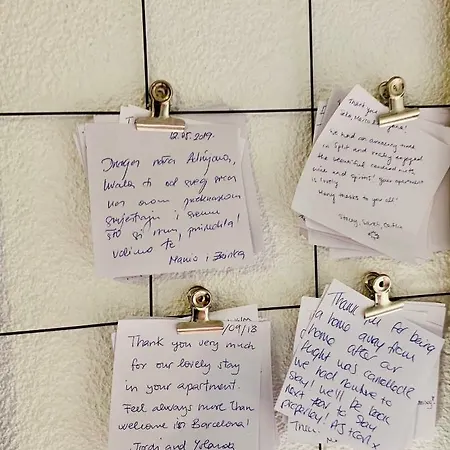 12.05.2019.
Draga naša Adrijana,
hvala ti od sveg srca
na ovom prekrasnom
smještaju i svemu
što si nam priuštila!
volimo te
Mario i
Thank you
We had an amazing week
in Split and really enjoyed
the beautiful
wine and Your apartment
is lovely
Many thanks to you all!
Stacey, Sarah,
/09/18
Thank you very much
for our lovely stay
in your apartment.
Feel always more than
welcome in Barcelona!
Jordi and Yolanda
Thank you for being
a home away from
home after our
flight was cancelled &
we had nowhere to
stay! We'll be back
next year to stay
properly!
x